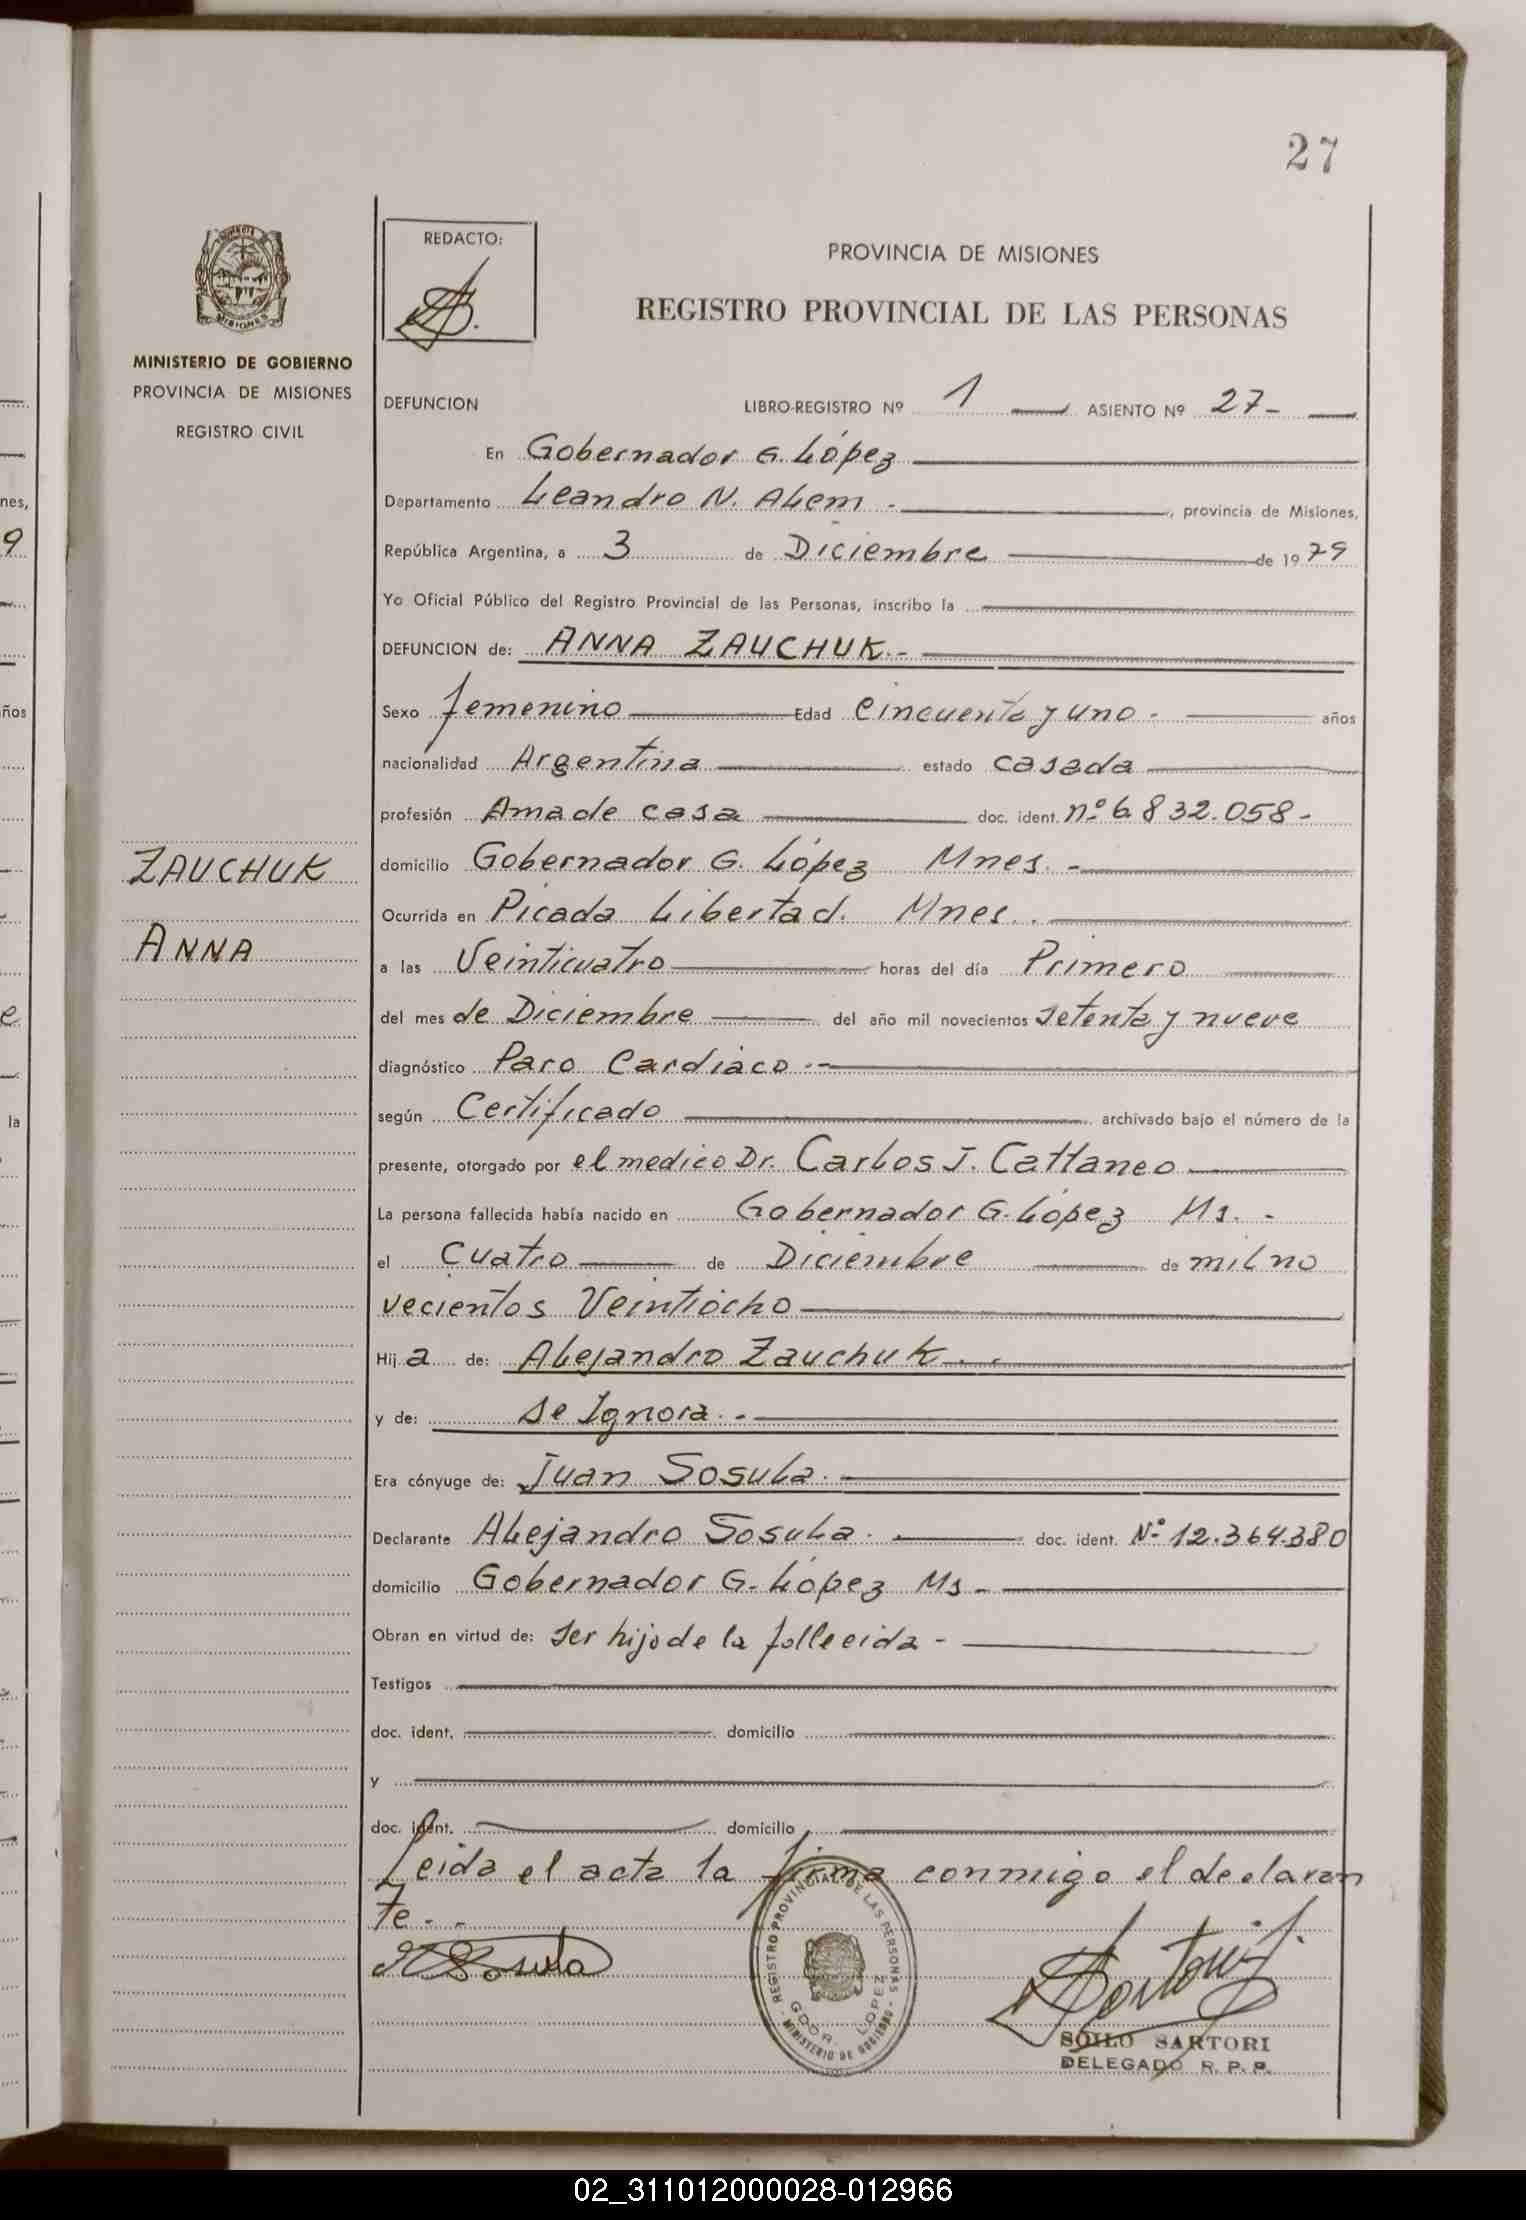 27
REDACTO:
PROVINCIA DE MISIONES
REGISTRO PROVINCIAL DE LAS PERSONAS
MISIONES
MINISTERIO DE GOBIERNO
PROVINCIA DE MISIONES
REGISTRO CIVIL
DEFUNCION LIBRO-REGISTRO Nº 1 ASIENTO Nº 27-
En Gobernador G. López
Departamento Leandro N. Alem - , provincia de Misiones,
República Argentina, a 3 de Diciembre de 1979
Yo Oficial Público del Registro Provincial de las Personas, inscribo la
DEFUNCION de: ANNA ZAUCHUK.-
Sexo femenino Edad Cincuenta y uno - años
nacionalidad Argentina estado casada
profesión Ama de casa doc. ident. nº 6.832.058-
ZAUCHUK
ANNA
domicilio Gobernador G. López Mnes. -
Ocurrida en Picada Libertad. Mnes..
a las Veinticuatro horas del día Primero
del mes de Diciembre del año mil novecientos setenta y nueve
diagnóstico Paro Cardiaco.-
según Certificado archivado bajo el número de la
presente, otorgado por el medico Dr. Carlos J. Cattaneo
La persona fallecida había nacido en Gobernador G. López Ms. -
el Cuatro de Diciembre de mil no
vecientos Veintiocho
Hij a de: Alejandro Zauchuk..
y de: se Ignora.-
Era cónyuge de: Juan Sosula.
Declarante Alejandro Sosula. doc. ident. Nº 12.364.380
domicilio Gobernador G. López Ms -
Obran en virtud de: ser hijo de la fallecida -
Testigos
doc. ident. domicilio
y
doc. ident. domicilio
Leida el acta la firma conmigo el declaran
te.-
Sosula
REGISTRO PROVINCIAL DE LAS PERSONAS
GDOR. LOPEZ
MINISTERIO DE GOBIERNO
SOILO SARTORI
DELEGADO R. P. P.
nes,
9
ños
e
la
02_311012000028-012966